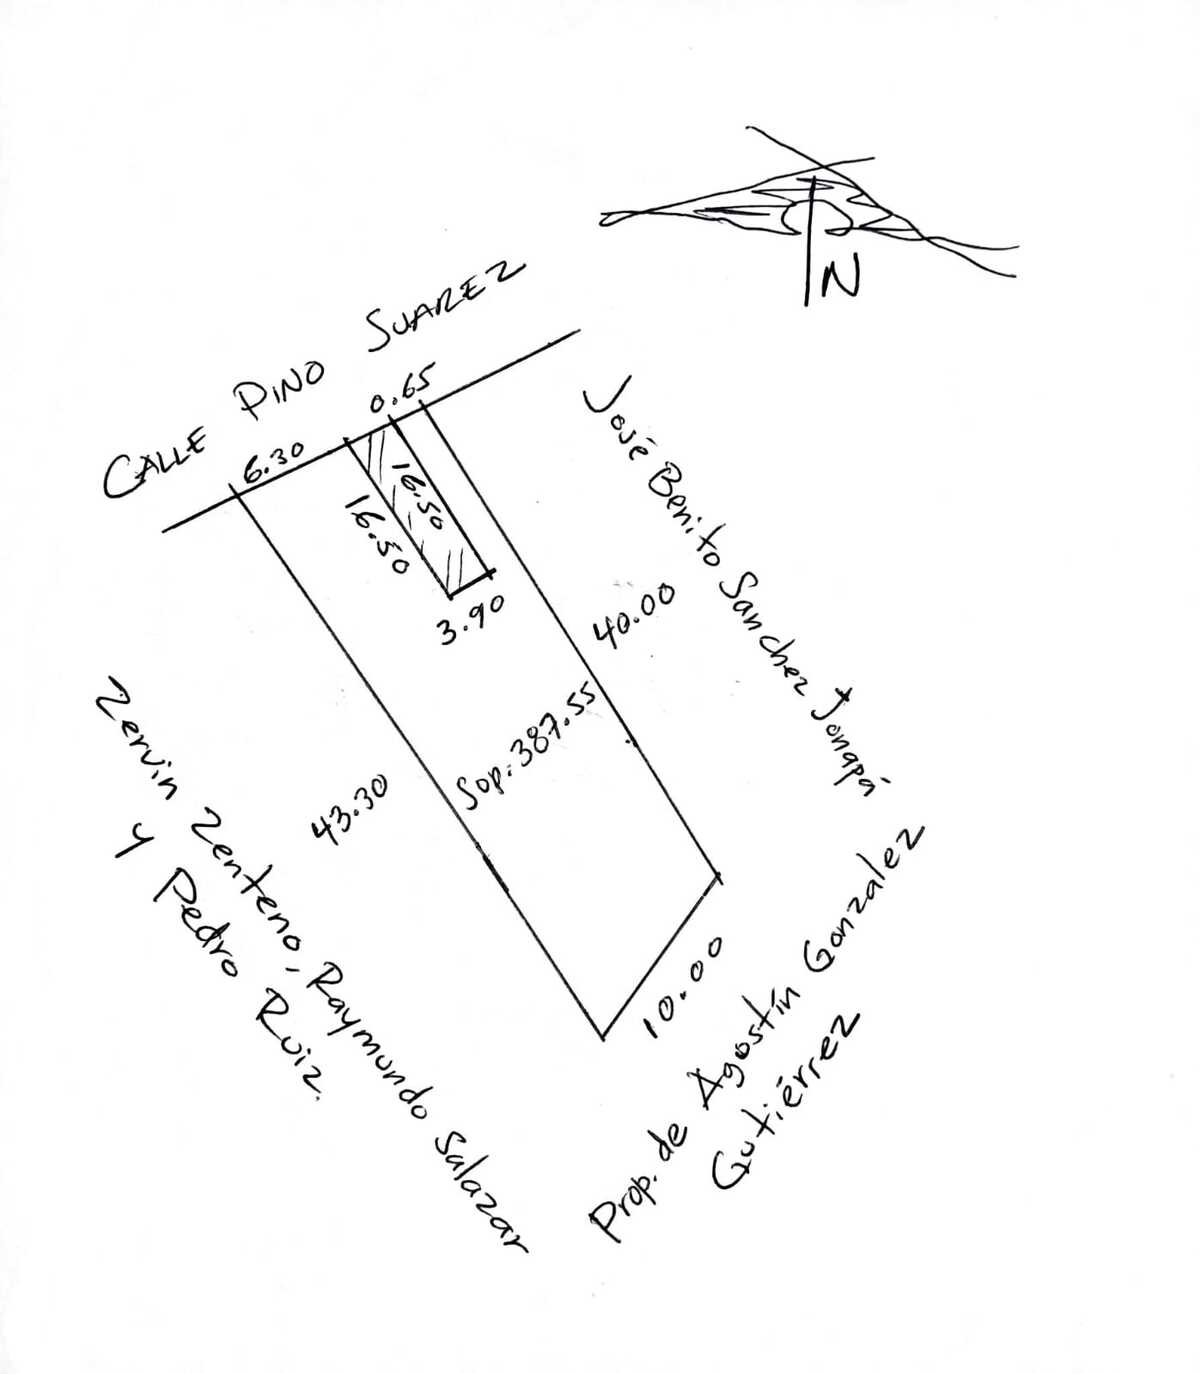 N
CALLE PINO SUAREZ
6.30
0.65
16.50
16.50
3.90
José Benito Sanchez Jonapá
40.00
Sop. 387.55
43.30
Zervin Zenteno, Raymundo Salazar
y Pedro Ruiz.
10.00
Prop. de Agostín Gonzalez
Gutiérrez